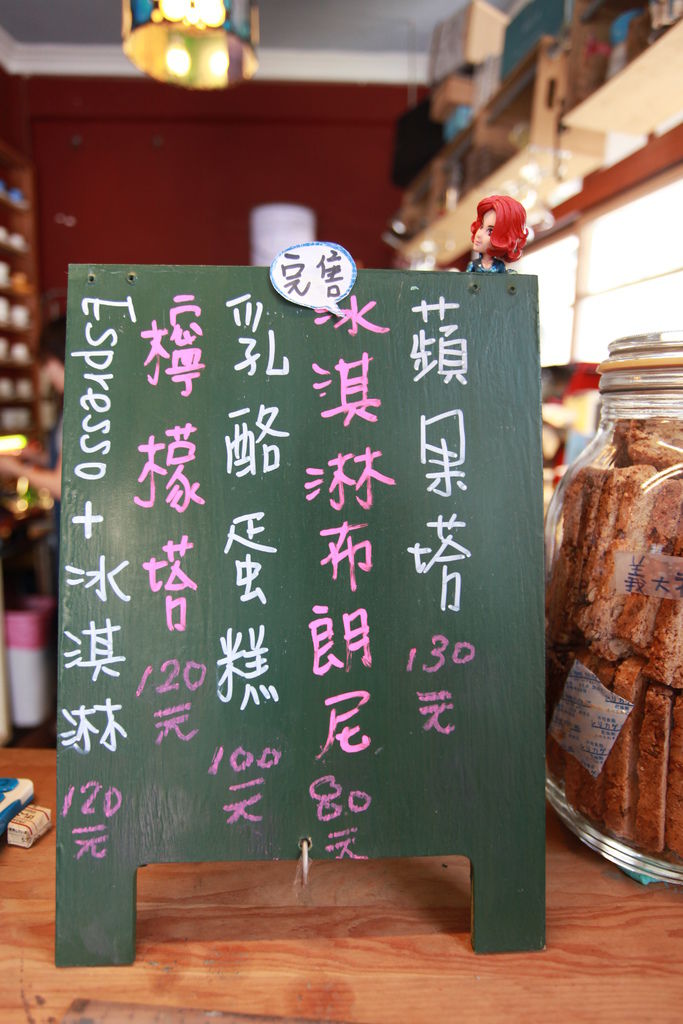 完售
蘋果塔 130元
冰淇淋布朗尼 80元
乳酪蛋糕 100元
檸檬塔 120元
Espresso + 冰淇淋 120元
義大